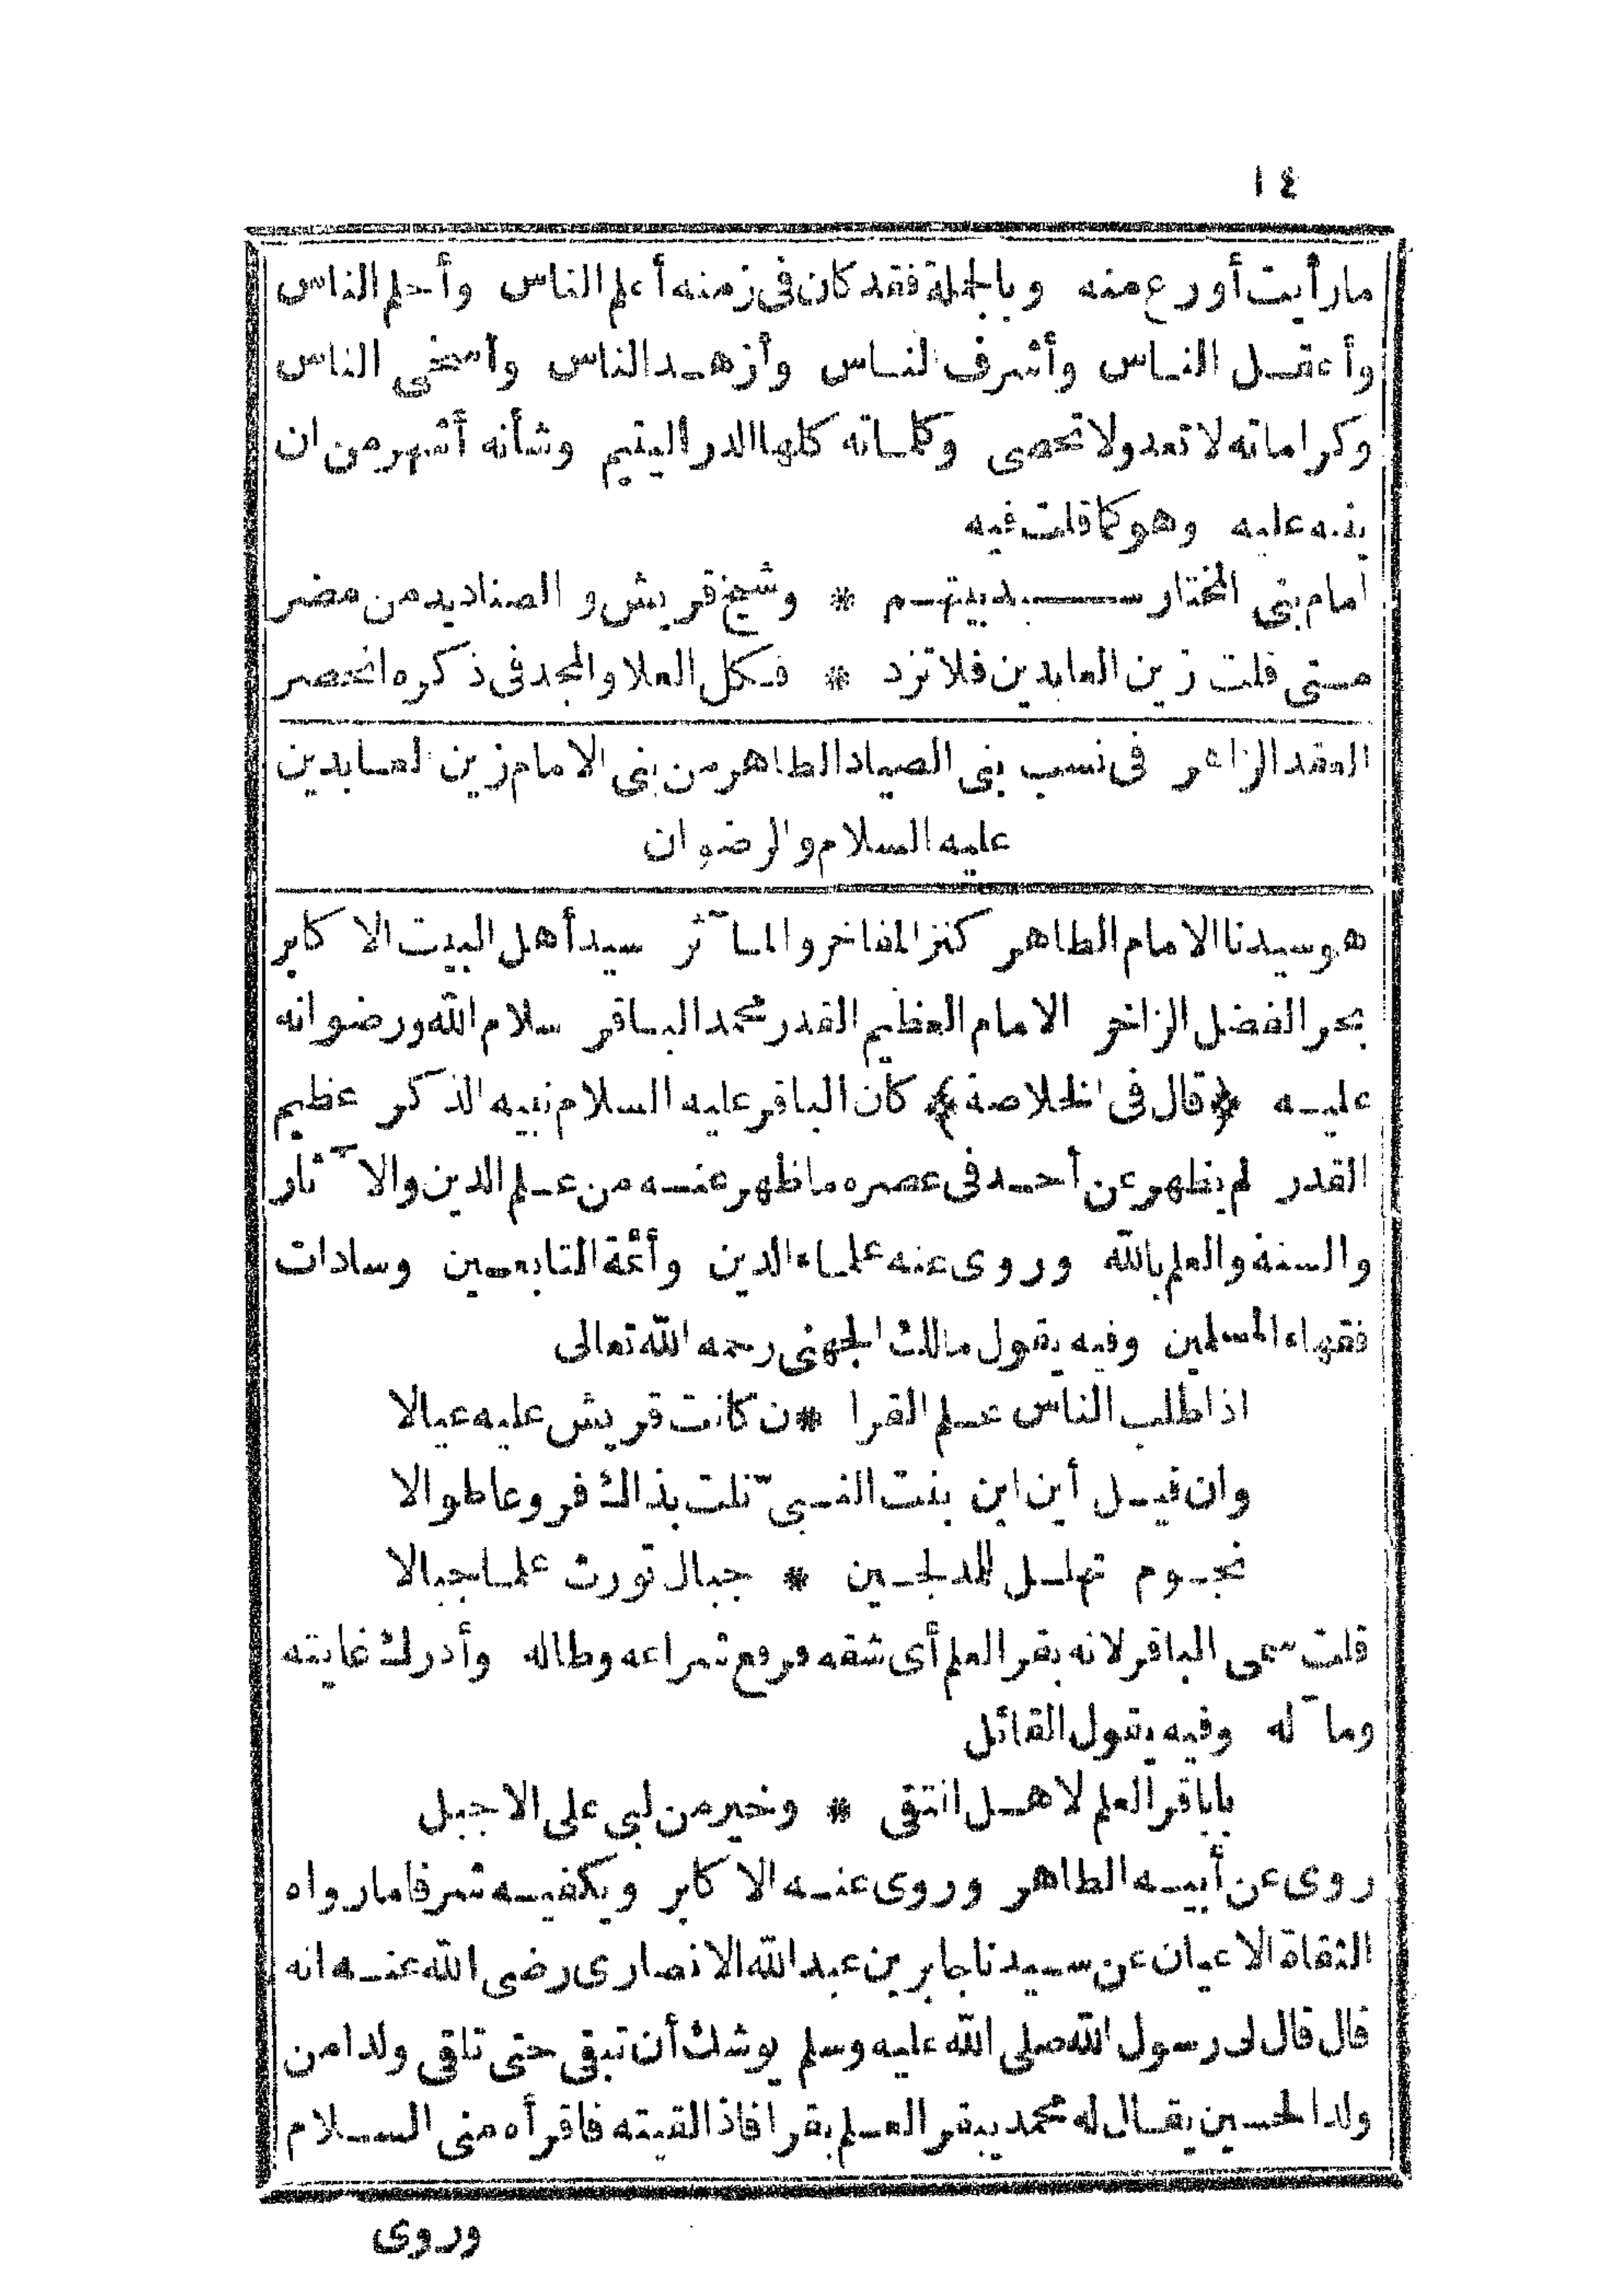 ١٤
مارأيت أورع منه وبالجملة فقد كان فى زمنه أعلم الناس وأحلم الناس
وأعقل الناس وأشرف الناس وأزهد الناس وأسخى الناس
وكراماته لا تعد ولا تحصى وكلماته كلها الدر اليتيم وشأنه أشهر من ان
ينبه عليه وهو كما قلت فيه
امام بنى المختار سيد بيتهم * وشيخ قريش والصناديد من مضر
متى قلت زين العابدين فلا تزد * فكل العلا والمجد فى ذكره انحصر
العقد الزاهر فى نسب بنى الصياد الطاهر من بنى الامام زين العابدين
عليه السلام والرضوان
هو سيدنا الامام الطاهر كنز المفاخر والمآثر سيد أهل البيت الاكابر
بحر الفضل الزاخر الامام العظيم القدر محمد الباقر سلام الله ورضوانه
عليه ﴿قال فى الخلاصة﴾ كان الباقر عليه السلام نبيه الذكر عظيم
القدر لم يظهر عن أحد فى عصره ما ظهر عنه من علم الدين والآثار
والسنة والعلم بالله وروى عنه علماء الدين وأئمة التابعين وسادات
فقهاء المسلمين وفيه يقول مالك الجهنى رحمه الله تعالى
اذا طلب الناس علم القرا * ن كانت قريش عليه عيالا
وان قيل أين ابن بنت النبىّ نلت بذاك فروعا طوالا
نجوم تهلل للمدلجين * جبال تورث علما جبالا
قلت سمى الباقر لانه بقر العلم أى شقه فرفع شراعه وطاله وأدرك غايته
ومآله وفيه يقول القائل
يا باقر العلم لاهل التقى * وخير من لبى على الاجبل
روى عن أبيه الطاهر وروى عنه الاكابر ويكفيه شرفا ما رواه
الثقاة الاعيان عن سيدنا جابر بن عبد الله الانصارى رضى الله عنه انه
قال قال لى رسول الله صلى الله عليه وسلم يوشك أن تبقى حتى تلقى ولدا من
ولد الحسين يقال له محمد يبقر العلم بقرا فاذا لقيته فاقرأه منى السلام
وروى